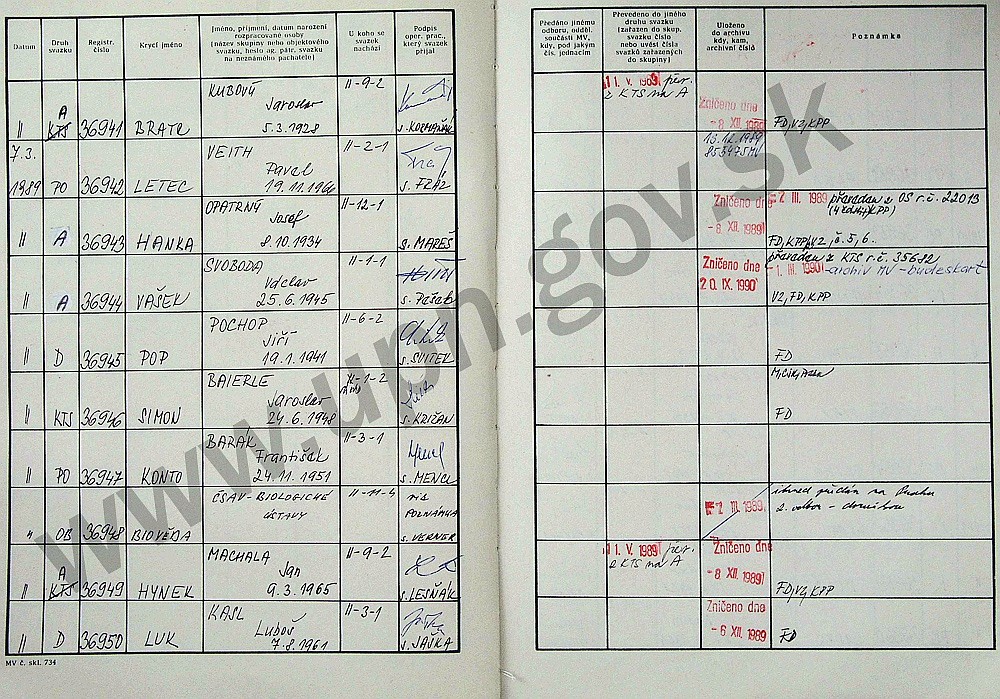 Datum
Druh svazku
Registr. číslo
Krycí jméno
Jméno, příjmení, datum narození
rozpracované osoby
(název skupiny nebo objektového
svazku, heslo ag. pátr. svazku
na neznámého pachatele)
U koho se
svazek
nachází
Podpis
oper. prac.,
který svazek
přijal
Předáno jinému
odboru, odděl.
součásti MV,
kdy, pod jakým
čís. jednacím
Převedeno do jiného
druhu svazku
(zařazen do skup.
svazku číslo
nebo uvést čísla
svazků zařazených
do skupiny)
Uloženo
do archivu
kdy, kam,
archivní číslo
Poznámka
KUBOVÝ II-9-2
A Jaroslav
II KTS 36941 BRATR 5.3.1928 s. KORMAŇÁK
11. V. 1989 pér.
z KTS na A
Zničeno dne
-8 XII. 1989
FD, V2, KPP
7.3. VEITH II-2-1
Pavel
1989 PO 36942 LETEC 19.11.1960 s. FRÁZ
13.12.1989
OPATRNÝ II-12-1
Josef
II A 36943 HANKA 8.10.1934 s. MAREŠ
Zničeno dne
-8. XII. 1989
-2 III. 1989 převeden z OS r.č. 22013
FD, KTPP, V2, č. 5, 6.
SVOBODA II-1-1
Václav
II A 36944 VAŠEK 25.6.1945 s. Pešek
Zničeno dne
20. IX. 1990
převeden z KTS r.č. 35682
-1. III. 1990 -archiv MV -
V2, FD, KPP
POCHOP II-6-2
Jiří
II D 36945 POP 19.1.1941 s. SVITEK
FD
BAIERLE -1-2
Jaroslav
II KTS 36946 SIMON 24.6.1948 s. KRIŽAN
FD
BARAK II-3-1
František
II PO 36947 KONTO 24.11.1951 s. MENCL
ČSAV-BIOLOGICKÉ II-11-4 viz
ÚSTAVY POZNÁMKA
" OB 36948 BIOVĚDA s. VERNER
-2 III. 1989
ihned předán na Prahu
MACHALA II-9-2
A Jan
II KTS 36949 HYNEK 9.3.1965 s. LESŇÁK
11. V. 1989 per.
z KTS na A
Zničeno dne
-8 XII. 1989
FD, V2, KPP
KASL II-3-1
Luboš
II D 36950 LUK 7.8.1961 s. JAŠKA
Zničeno dne
-6 XII. 1989
FD
MV č. skl. 734
www.upn.gov.sk